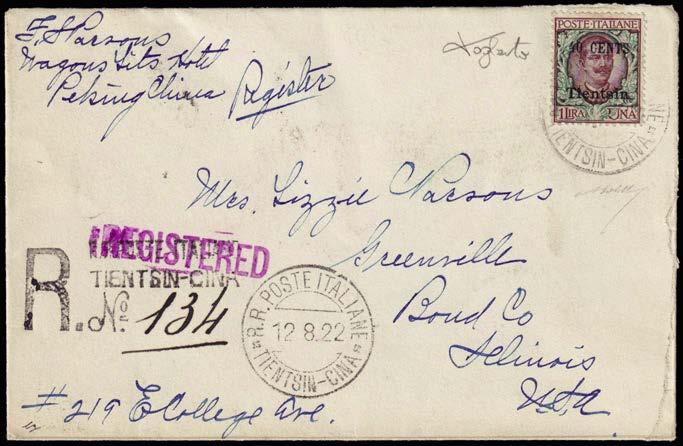 F. S Parsons
Wagons Lits Hotel
Peking China
Register
POSTE ITALIANE
40 CENTS
Tientsin
1 LIRA UNA
TIENTSIN-CINA
Mrs. Lizzie Parsons
Greenville
Bond Co
Illinois
U.S.A
REGISTERED
R.R. POSTE ITALIANE
TIENTSIN-CINA
R. No. 134
R.R. POSTE ITALIANE
12 8.22
TIENTSIN-CINA
# 219 E College Ave.